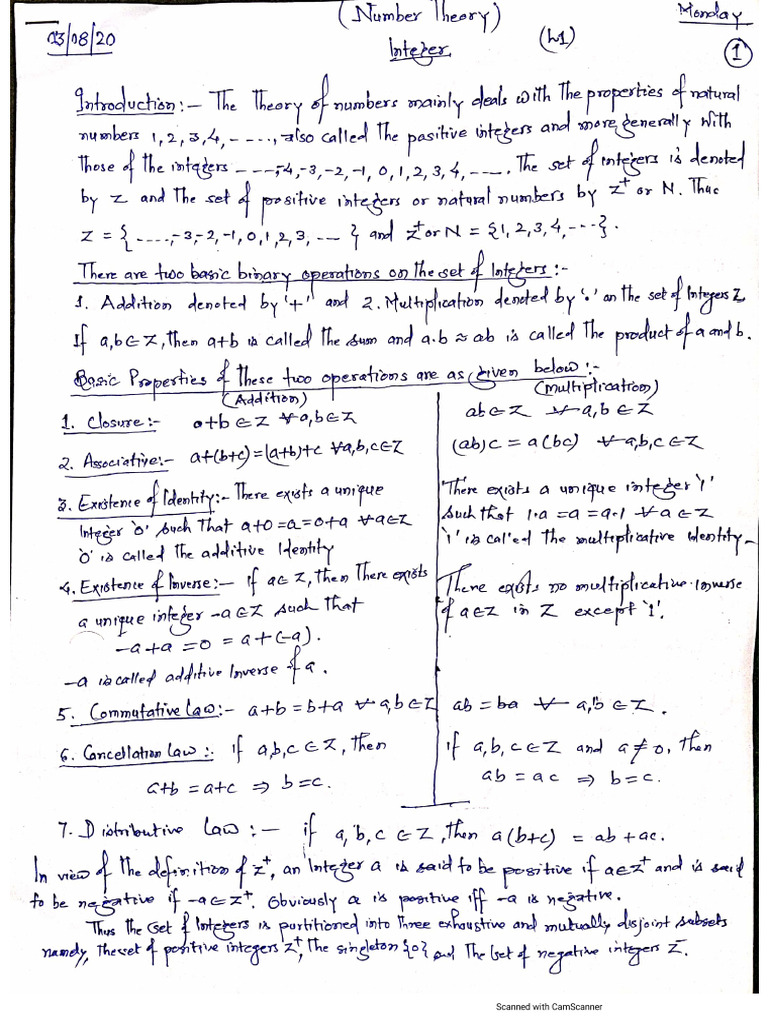 (Number Theory) Monday
03/08/20 Integer (L1) 1
Introduction:- The Theory of numbers mainly deals with The properties of natural
numbers 1, 2, 3, 4, - - - -, also called The positive integers and more generally with
those of the integers - - - -, -4, -3, -2, -1, 0, 1, 2, 3, 4, - - - -. The set of integers is denoted
by Z and The set of positive integers or natural numbers by Z⁺ or N. Thus
Z = {- - - -, -3, -2, -1, 0, 1, 2, 3, - - -} and Z⁺ or N = {1, 2, 3, 4, - - -}.
There are two basic binary operations on the set of Integers:-
1. Addition denoted by '+' and 2. Multiplication denoted by '·' on the set of Integers Z
If a,b ∈ Z, then a+b is called the sum and a.b ≈ ab is called The product of a and b.
Basic Properties of These two operations are as given below:-
(Addition) (Multiplication)
1. Closure:- a+b ∈ Z ∀ a,b ∈ Z ab ∈ Z ∀ a,b ∈ Z
2. Associative:- a+(b+c) = (a+b)+c ∀ a,b,c ∈ Z (ab)c = a(bc) ∀ a,b,c ∈ Z
3. Existence of Identity:- There exists a unique
Integer '0' such That a+0 = a = 0+a ∀ a ∈ Z
'0' is called The additive Identity
There exists a unique integer '1'
such that 1.a = a = a.1 ∀ a ∈ Z
'1' is called The multiplicative identity.
4. Existence of Inverse:- If a ∈ Z, then There exists
a unique integer -a ∈ Z such that
-a + a = 0 = a + (-a).
-a is called additive Inverse of a.
There exists no multiplicative inverse
of a ∈ Z in Z except '1'.
5. Commutative Law:- a+b = b+a ∀ a,b ∈ Z ab = ba ∀ a,b ∈ Z.
6. Cancellation Law:- if a,b,c ∈ Z, then
a+b = a+c ⇒ b = c.
if a,b,c ∈ Z and a ≠ 0, then
ab = ac ⇒ b = c.
7. Distributive Law:- if a, b, c ∈ Z, then a(b+c) = ab + ac.
In view of the definition of Z⁺, an Integer a is said to be positive if a ∈ Z⁺ and is said
to be negative if -a ∈ Z⁺. Obviously a is positive iff -a is negative.
Thus the set of Integers is partitioned into three exhaustive and mutually disjoint subsets
namely, The set of positive integers Z⁺, The singleton {0} and The set of negative integers Z⁻.
Scanned with CamScanner